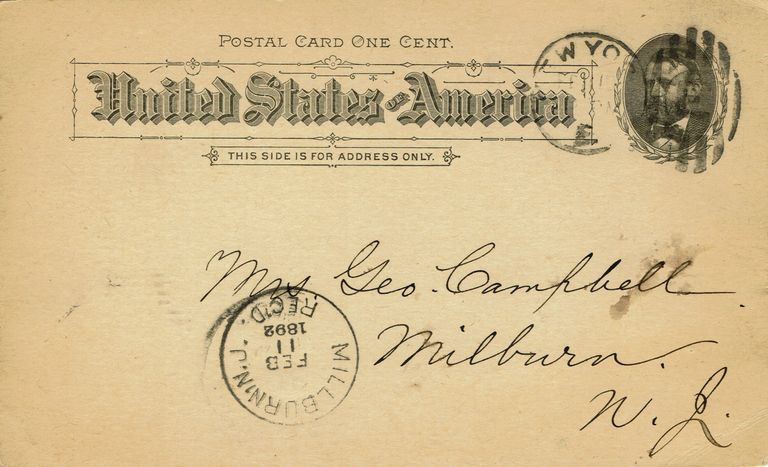 POSTAL CARD ONE CENT.
United States of America
THIS SIDE IS FOR ADDRESS ONLY.
EW YO
E
Mrs Geo. Campbell
Milburn.
N. J.
MILLBURN N.J.
FEB
11
1892
REC'D.